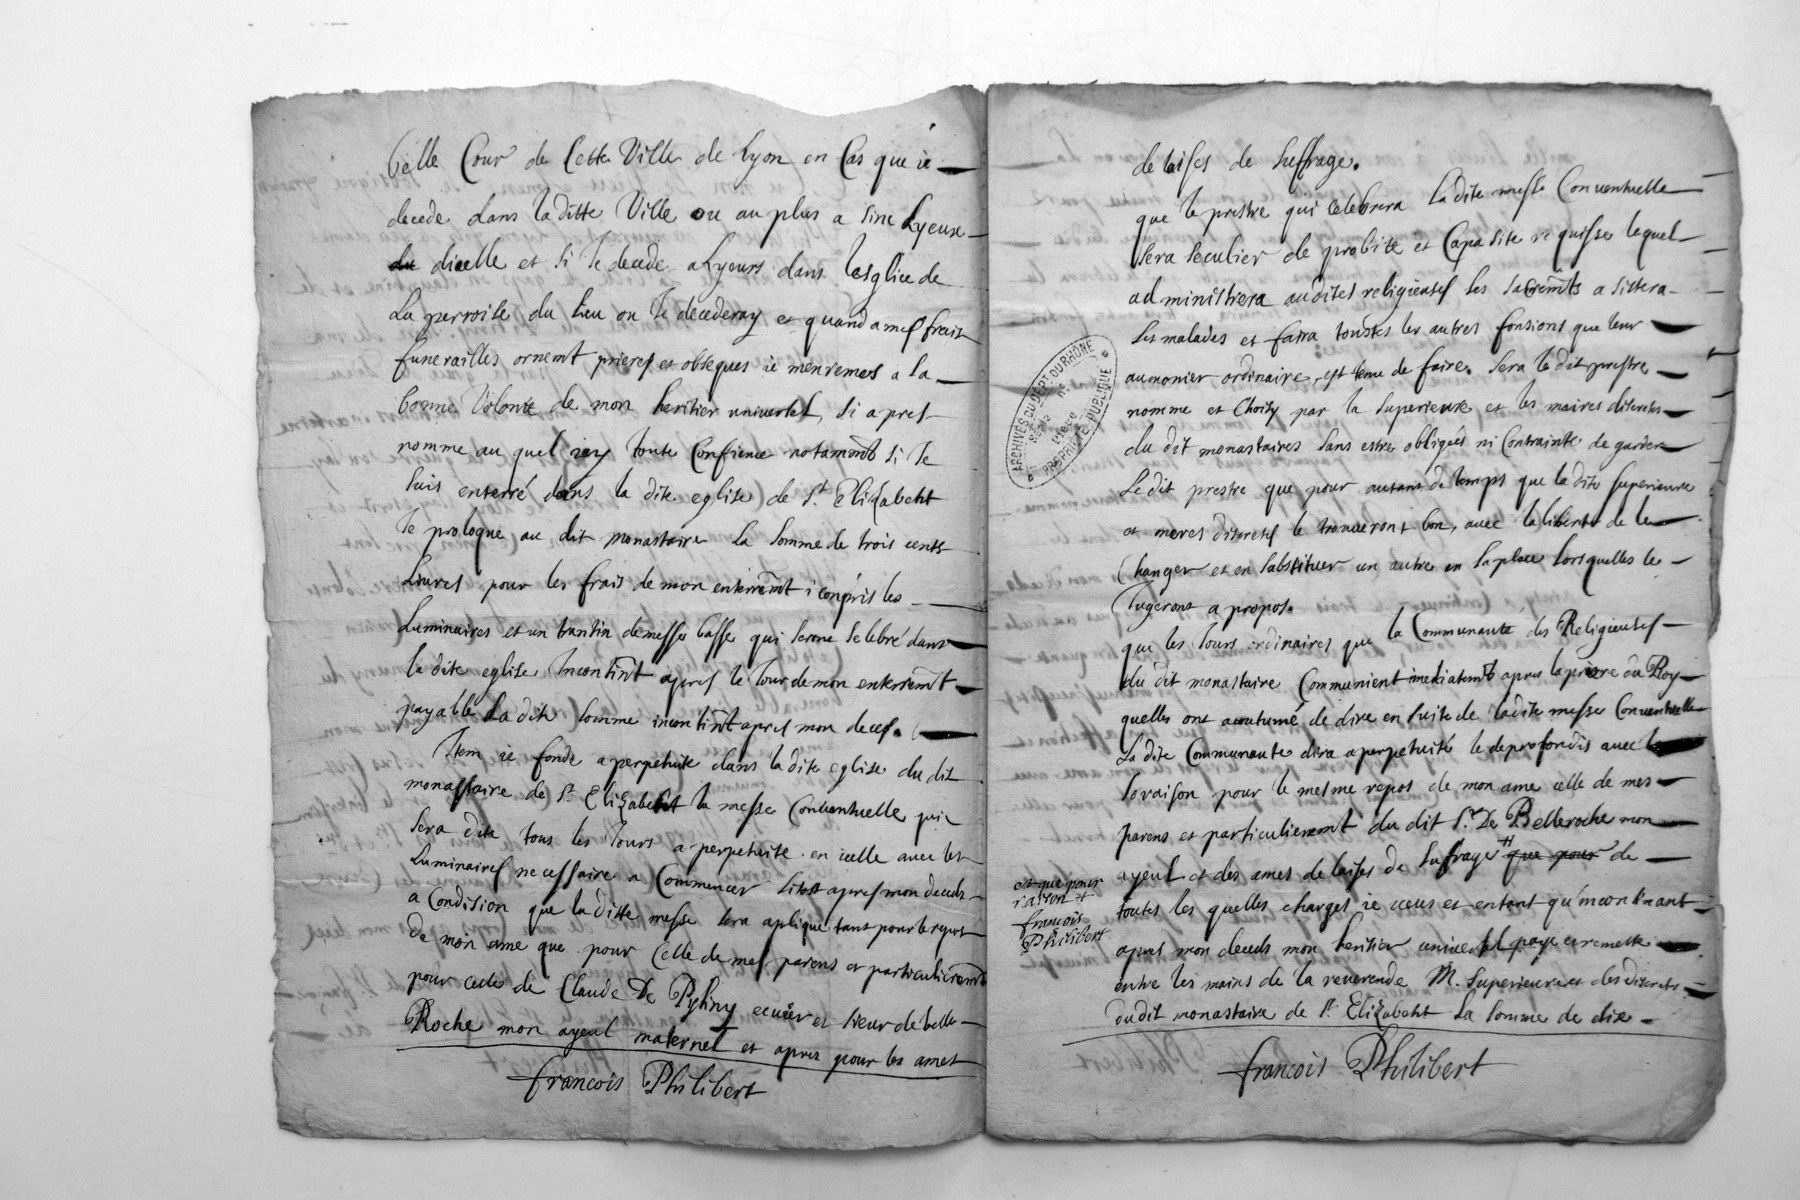 belle Cour de Cette Ville de lyon en Cas que ie
decede dans la ditte Ville ou au plus a sinc lyeux
du dicelle et si Ie decede alyeurs dans lesglice de
la parroise du lieu ou Ie decederay et quand a mes frais
funerailles ornemt prieres et obseques ie menremes a la
bonne Volonte de mon heritier universel, si apres
nomme au quel iay toute Confience notammt si Ie
suis enterré dans la dite eglise de St. Elizabeht
Ie prologue au dit monastaire la somme de trois cents
Livres pour les frais de mon enterremt i conpris les
Luminaires et un trantin de messes basses qui serone selebré dans
la dite eglise Incontint apres le Iour de mon enterremt
payable la dite somme incontint apres mon deces.
Item ie fonde a perpetuite dans la dite eglise du dit
monastaire de St. Elizabeht la messe Conventuelle qui
sera dite tous les Iours a perpetuite en icelle avec les
Luminaires necessaire a Commencer sitost apres mon deceds
a Condision que la ditte messe sera apliqué tant pour le repos
de mon ame que pour Celle de mes parens et particulieremt
pour celle de Claude De Pyliny ecuier et sieur de belle
Roche mon ayeul maternel et apres pour les ames
francois Philibert
de laises de suffrage.
que le prestre qui celebrera la dite messe Conventuelle
sera seculier de probite et Capasite requisse lequel
administrera audites religieuses les sacremts asistera
les malades et faira toustes les autres fonsions que leur
aumonier ordinaire est tenu de faire. sera le dit prestre
nomme et Choisy par la superieure et les maires discretes
du dit monastaires sans estre obligées ni Contrainte de garder
le dit prestre que pour autant de temps que la dite superieure
et meres discretes le trouveront bon, avec la liberté de le
Changer et en substituer un autre en sa place lorsquelles le
Iugeront a propos.
que les Iours ordinaires que la Communauté des Religieuses
du dit monastaire Communient imediatemt apres la priere du Roy
quelles ont acoutumé de dire en suite de la dite messe Conventuelle
la dite Communaute dira a perpetuité le deprofondis avec
loraison pour le mesme repos de mon ame celle de mes
parens et particulieremt du dit Sr. De Belleroche mon
ayeul et des ames de laises de suffrage que pour de
et que pour
raison
francois
Philibert
toutes les quelles charges ie veus et entent qu'incontinant
apres mon deceds mon heritier universel paye et remette
entre les mains de la reverende M. superieure et des discretes
du dit monastaire de St. Elizabeht la somme de dix
francois Philibert
ARCHIVES DU DEPT DU RHÔNE
Série n°
Pièce
PROPRIÉTÉ PUBLIQUE